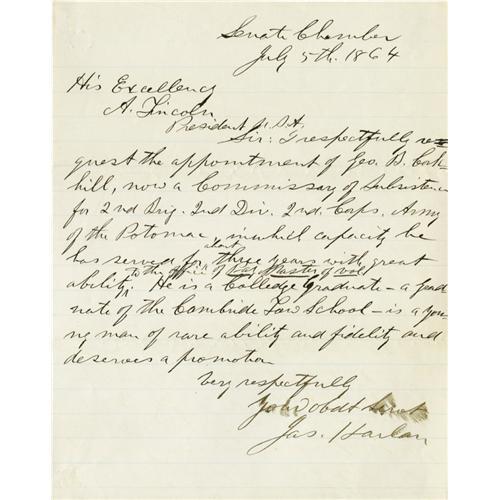 Senate Chamber
July 5th. 1864
His Excellency
A. Lincoln
President U.S.A.
Sir: I respectfully re
quest the appointment of Geo. B. Cork-
hill, now a Commissary of Subsistence
for 2nd Brig. 2nd Div. 2nd. Corps. Army
of the Potomac, in which capacity he
about
has served for three years with great
to the office of Pay Master of vol
ability. He is a Colledge graduate - a grad
uate of the Cambridge Law School - is a you-
ng man of rare ability and fidelity and
deserves a promotion
Very respectfully
Your obdt Servt
Jas. Harlan